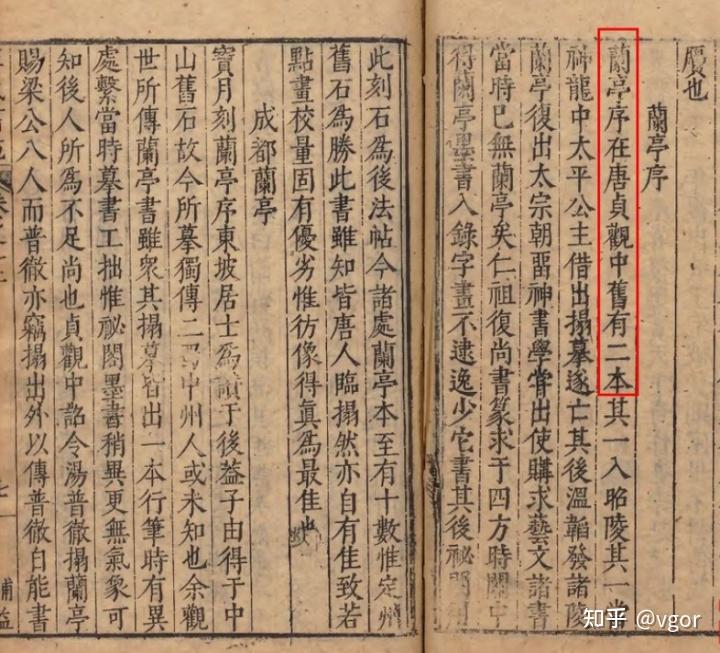 贗也
蘭亭序
蘭亭序在唐貞觀中舊有二本其一入昭陵其一當
神龍中太平公主借出搨摹遂亡其後溫韜發諸陵
蘭亭復出太宗朝畱神書學嘗出使購求藝文諸書
當時已無蘭亭矣仁祖復尚書篆求于四方時關中
得蘭亭墨書入錄字畫不逮逸少它書其後祕閣用
此刻石爲後法帖今諸處蘭亭本至有十數惟定州
舊石爲勝此書雖知皆唐人臨搨然亦自有佳致若
點畫校量固有優劣惟彷像得眞爲最佳也
成都蘭亭
寶月刻蘭亭序東坡居士爲讚于後益子由得于中
山舊石故今所摹獨傳二蜀中州人或未知也余觀
世所傳蘭亭書雖衆其搨摹皆出一本行筆時有異
處繫當時摹書工拙惟祕閣墨書稍異更無氣象可
知後人所爲不足尚也貞觀中詔令湯普徹搨蘭亭
賜梁公八人而普徹亦竊搨出外以傳普徹自能書
知乎 @vgor